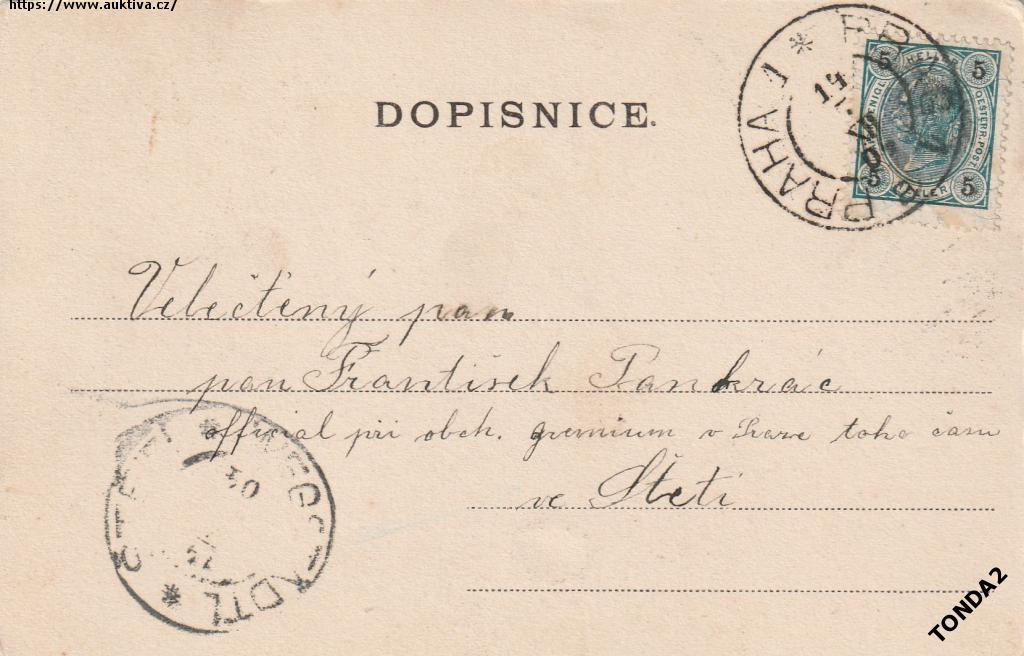 https://www.auktiva.cz/
DOPISNICE.
PRAHA 1
5 HELLER 5
OESTERR. POST.
5 HELLER 5
Velečtěný pan
pan František Pankrác
official při obch. gremium v Praze toho času
ve Štětí
ŠTĚTÍ * WEGSTÄDTL *
TONDA2